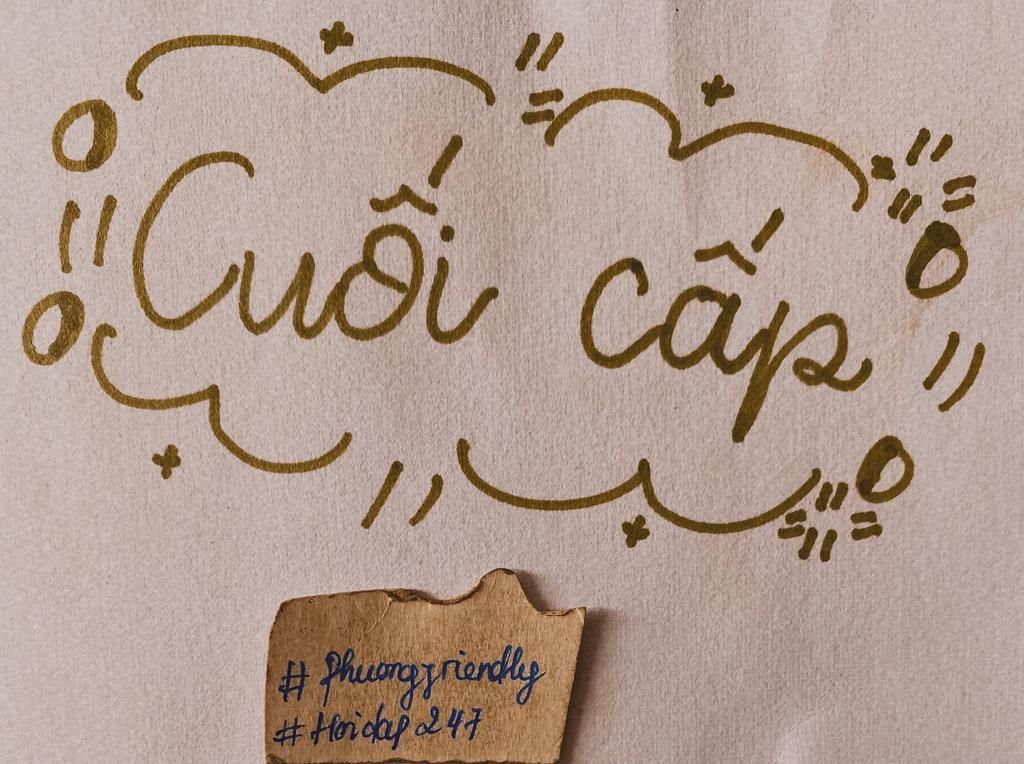 Cuối cấp
# phuongfriendly
# Hoidap 247